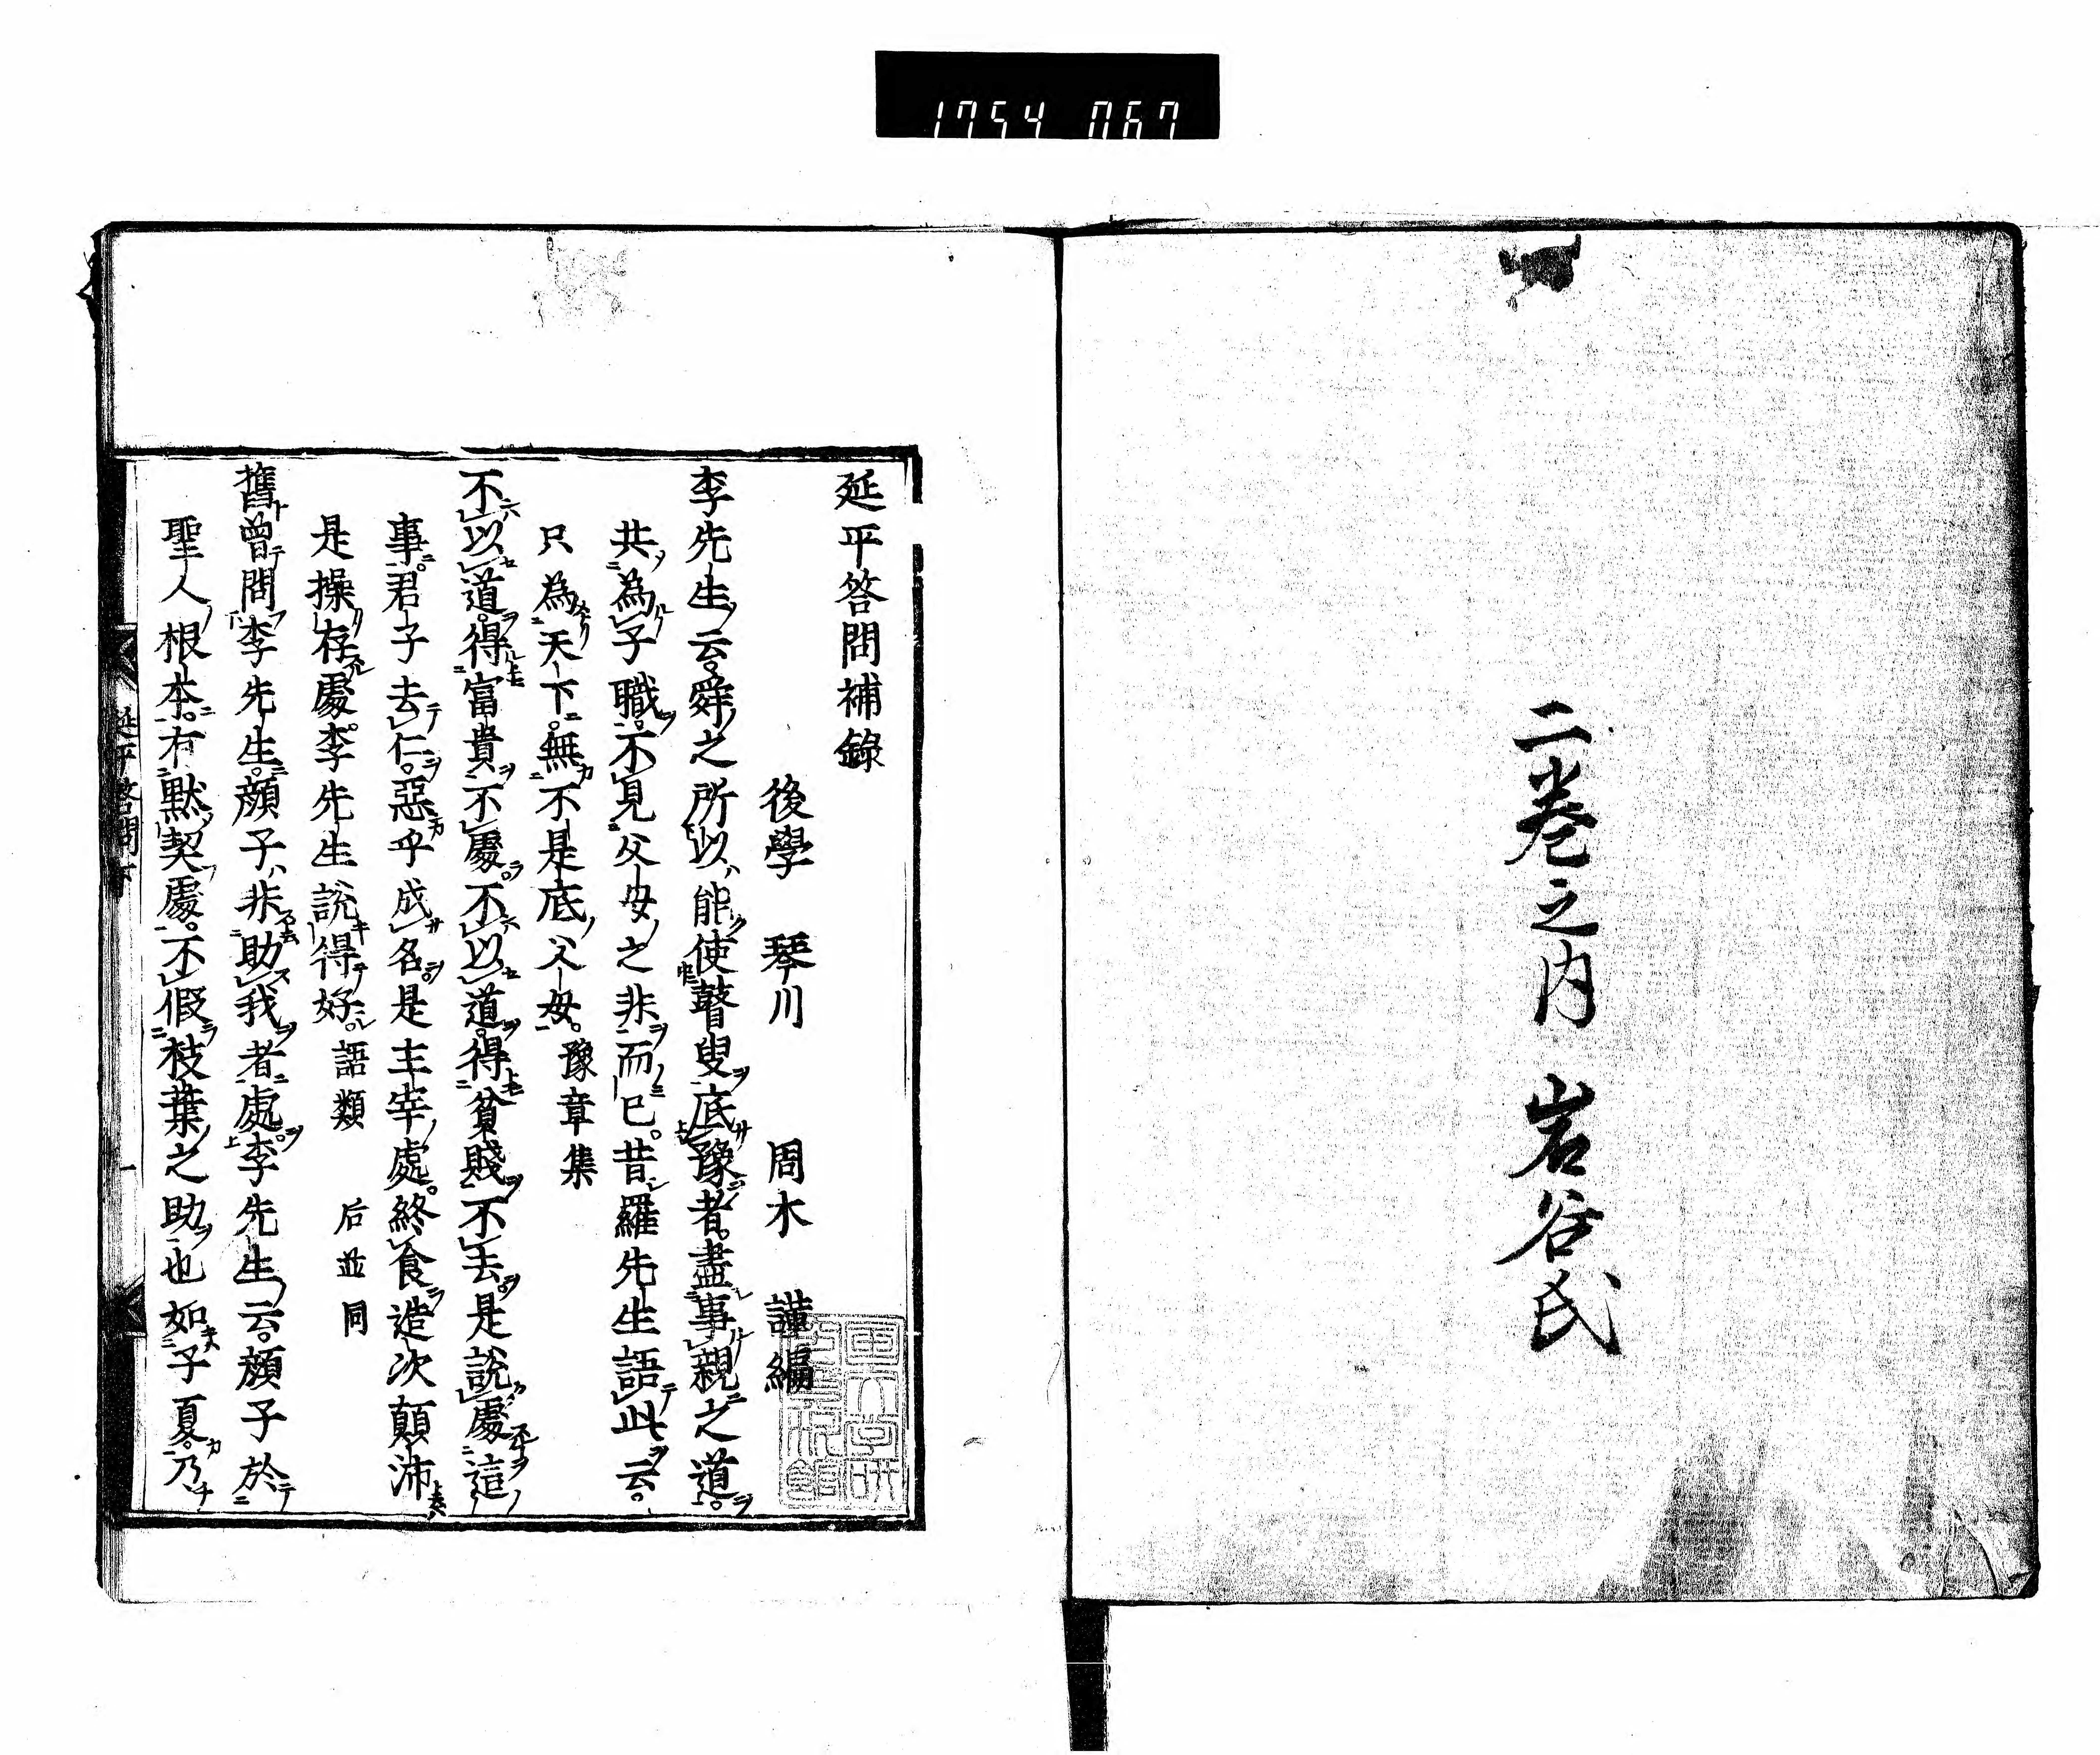 1754 067
二巻之内 岩谷氏
延平答問補錄
後學 琴川 周木 謹編
李先生云。舜之所以能使瞽叟底豫者。盡事親之道。
共為子職。不見父母之非而已。昔羅先生語此云。
只為天下。無不是底父母。豫章集
不以道。得富貴不處。不以道。得貧賤不去。是說處這
事。君子去仁。惡乎成名。是主宰處。終食造次顛沛
是操存處。李先生說得好。語類 后並同
舊曾問李先生。顏子非助我者處。李先生云。顏子於
聖人根本。有默契處。不假枝葉之助也如子夏。乃
延平答問
一